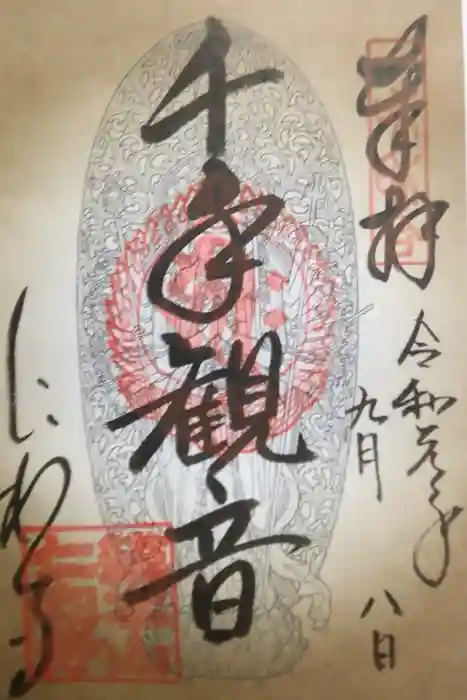 奉拝
令和元年
九月
八日
千手観音
にわじ